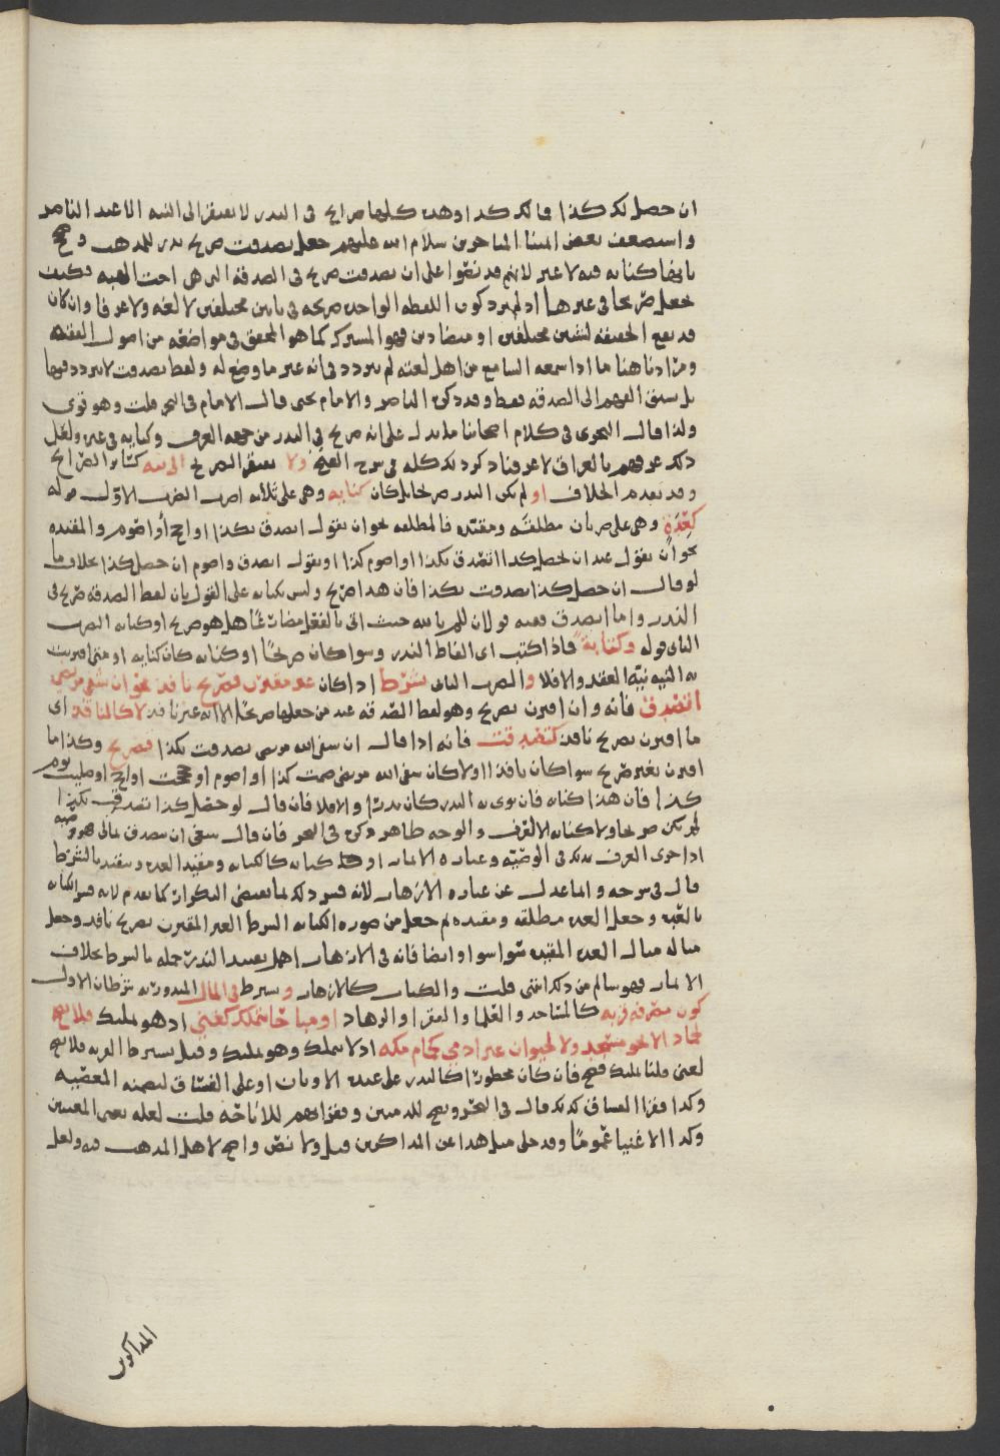 ان حصل لك كذا فالك كذا وهذه كلها صرائح في النذر لا تفتقر الى النيه الا عند الناصر
واستضعف بعض ائمتنا المتاخرين سلام الله عليهم جعل تصدقت صريح نذر للمذهب وصحح
بانها كنايه فيه لا غير لانهم قد نصوا على ان تصدقت صريح في الصدقه التي هي اخت الهبه فكيف
تجعل صريحا في غيرها اذ لم يرد كون اللفظه الواحده صريحه في بابين مختلفين لا لغه ولا عرفا وان كان
قد تقع الحقيقه لشيئين مختلفين او متضادين فهو المشترك كما هو المحقق في مواضعه من اصول الفقه
ومرادنا هنا ما اذا سمعه السامع من اهل لغته لم يتردد في انه عبر ما وضع له ولفظ تصدقت لا يتردد فيها
بل يسبق الفهم الى الصدقه فقط وقد ذكره الناصر والامام يحيى قال الامام في البحر قلت وهو قوي
ولذا قال النجري في كلام اصحابنا ما يدل على انه صريح في النذر من جهه العرف وكنايه في غيره ولعل
ذلك عرفهم بالعراق لا عرفنا ذكر ذلك كله في شرح الفتح ولا يفتقر الصريح الى نيه كسائر الصرائح
وقد تقدم الخلاف او لم يكن النذر صريحا بل كان كنايه وهي على ثلاثه اضرب الضرب الاول قوله
كعدة وهي على ضربان مطلقه ومقيده فالمطلقه نحو ان يقول اتصدق بكذا او احج أو اصوم والمقيده
نحو ان يقول عند ان يحصل كذا اتصدق بكذا او اصوم كذا او يقول اتصدق واصوم ان حصل كذا بخلاف ما
لو قال ان حصل كذا تصدقت بكذا فان هذا صريح وليس بكنايه على القول بان لفظ الصدقه صريح في
النذر واما اتصدق ففيه قولان للمؤيد بالله حيث اتى بالفعل مضارعا هل هو صريح او كنايه الضرب
الثاني قوله وكتابة فاذا كتب اي الفاظ النذر وسوا كان صريحا او كنايه كان كنايه او متى اقترنت
به النيه نيه العقد والا فلا والضرب الثالث شرط اذا كان غير مقترن بصريح نافذ نحو ان شفي مريضي
اتصدق فانه وان اقترن بصريح وهو لفظ الصدقه عند من جعلها صريحا الا انه غير نافذ لا كالنافذ اي
ما اقترن بصريح نافذ كتصدقت فانه اذا قال ان شفى الله مريضي تصدقت بكذا فصريح وكذا ما
اقترن بغير صريح سوا كان نافذا او لا كان شفى الله مريضي صمت كذا او اصوم او حججت او احج او صليت يوم
كذا فان هذا كنايه فان نوى به النذر كان نذرا والا فلا فان قال لو حصل كذا تصدقت بكذا
لم يكن صريحا ولا كنايه الا لعرف والوجه ظاهر ذكره في البحر فان قال شفي ان يتصدق بمالي فهو وصيه
اذا جرى العرف بذلك في الوصيه وعباره الاثمار او كنايه كالكتابه ومقيد العده ومقيده بالشرط
قال في شرحه وانما عدل عن عباره الازهار لانه فسر ذلك بما يقتضي التكرار كما تقدم لانه فسر الكنايه
بالعده وجعل العده مطلقه ومقيده ثم جعل من صوره الكنايه الشرط الغير المقترن بصريح نافذ وجعل
مثاله مثال العده المقيده سوا سوا وايضا فانه في الازهار اهمل تقييد النذر جمله بالشرط بخلاف
الاثمار فهو سالم من ذلك انتهى قلت والكتاب كالازهار ويشترط في المال المنذور به شرطان الاول
كون مصرفه قربه كالمساجد والعلما والفقرا والزهاد او مباحا يتملك كغني اذ هو يملك فلا يصح
لجماد الا نحو مسجد ولا لحيوان غير ادمي كحمام مكه اذ لا يتملك وهو يملك وقيل يشترط القربه فلا يصح
لغني قلنا يملك فصح فان كان محظورا كالنذر على عبده الاوثان او على الفساق لتضمنه المعصيه
وكذا فقرا الفساق كذلك قال في البحر ويصح للذميين وفقرائهم للاباحه قلت لعله يعني المعينين
وكذا الاغنيا عموما وقد حكى مثل هذا عن المذاكرين قيل ولا نص واضح لاهل المذهب فيه ولعل
المذاكرين